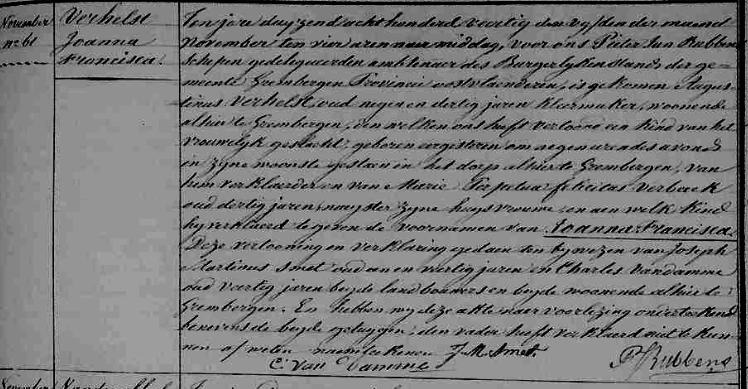 November
n° 61
Verhelst
Joanna
Francisca.
Ten jare duyzend acht honderd veertig den vyfden der maend
November ten vier uren naer middag, voor ons Pieter Jan Rubbens
schepen gedelegueerden amblenaer des Burgerlyken Stands der ge=
meente Grembergen Provincie oostvlaenderen, is gekomen Augus=
tinus Verhelst, oud negen en dertig jaren kleermaker, woonende
alhier te Grembergen, den welken ons heeft vertoond een kind van het
vrouwelyk geslacht, geboren eergisteren om negen uren des avonds
in zyne wooninge gestaen in het dorp alhier te Grembergen, van
hem verklaerder en van Marie Perpetua felicitas Verbeeck
oud dertig jaren, nayster zyne huysvrouwe, en aen welk kind
hy verklaerd te geven de voornamen van Joanna Francisca.
Deze vertooning en verklaring gedaen ten bywezen van Joseph
Martinus Smet oud een en veertig jaren en Charles Vandamme
oud veertig jaren beyde landbouwers en beyde woonende alhier te
Grembergen. En hebben wy deze akte naer voorlezing onderteekend
benevens de beyde getuygen, den vader heeft verklaerd niet te kun=
nen of weten naemteekenen J. M. Smet.
C. Van Damme
P J Rubbens
November